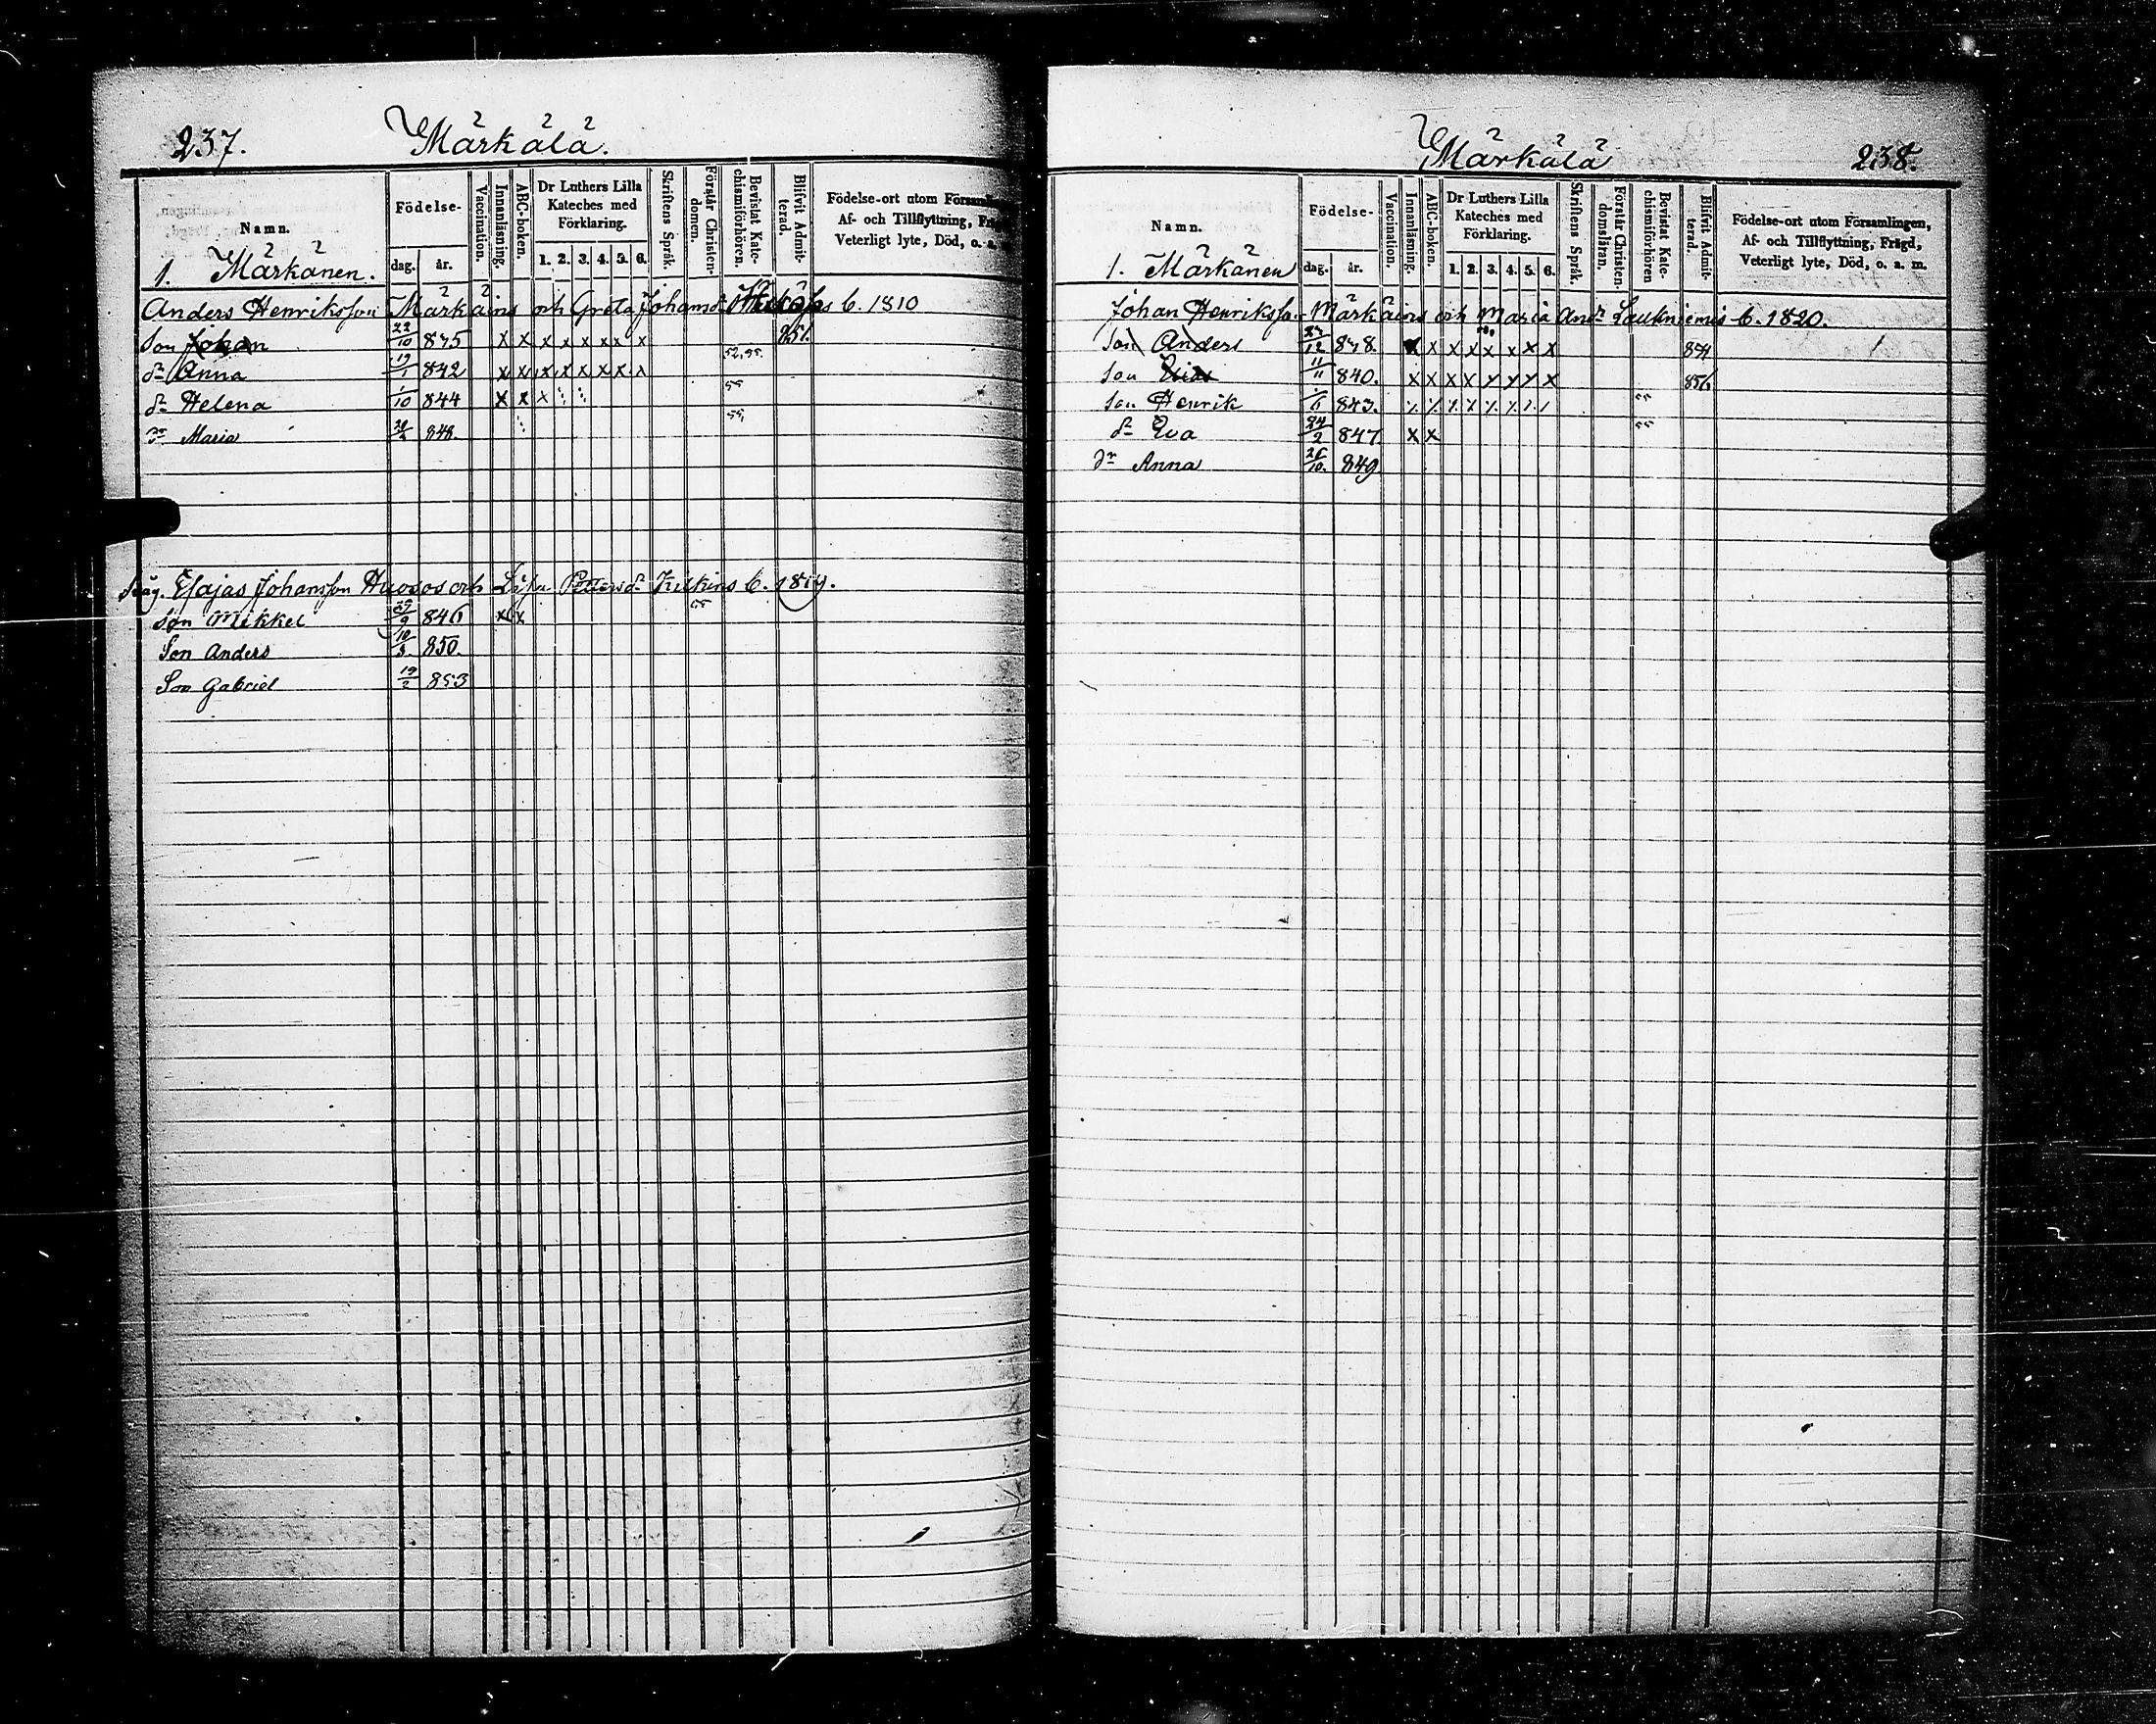 237. Märkälä.
Namn. Födelse- dag. år. Vaccination. Innanläsning. ABC-boken. Dr Luthers Lilla Kateches med Förklaring. 1. 2. 3. 4. 5. 6. Skriftens Språk. Förstår Christendomen. Bevistat Katechismiförhören. Blifvit Admitterad. Födelse-ort utom Församlingen Af- och Tillflyttning, Veterligt lyte, Död, o. a.
1. Märkänen.
Anders Henriksson Märkäins och Greta Johansdr b. 1810
Son Johan 22/10 835 x x x x x x x x 851.
dr Anna 19/1 842 x x x x x x x x 52, 55.
dr Helena /10 844 x x x 55
dr Maria 848. 55,
Esajas Johansson Huosos och Lisa Pettersdr b. 1819.
son Mikkel 29/9 846 x x 55
Son Anders 10/3. 850.
Son Gabriel 19/2 853
Märkälä 238.
Namn. Födelse- dag. år. Vaccination. Innanläsning. ABC-boken. Dr Luthers Lilla Kateches med Förklaring. 1. 2. 3. 4. 5. 6. Skriftens Språk. Förstår Christendomsläran. Bevistat Katechismiförhören Blifvit Admitterad. Födelse-ort utom Församlingen, Af- och Tillflyttning, Frägd, Veterligt lyte, Död, o. a. m.
1. Märkänen
Johan Henriksson Märkäins och Maria Andr Laukniemis b. 1820.
Son Anders /12 838. x x x x x x x x 854
Son Elias 11/11 840. x x x x x x x x 856
Son Henrik /6 843. 55
dr Eva 24/2 847 x x 55
dr Anna 26/10. 849